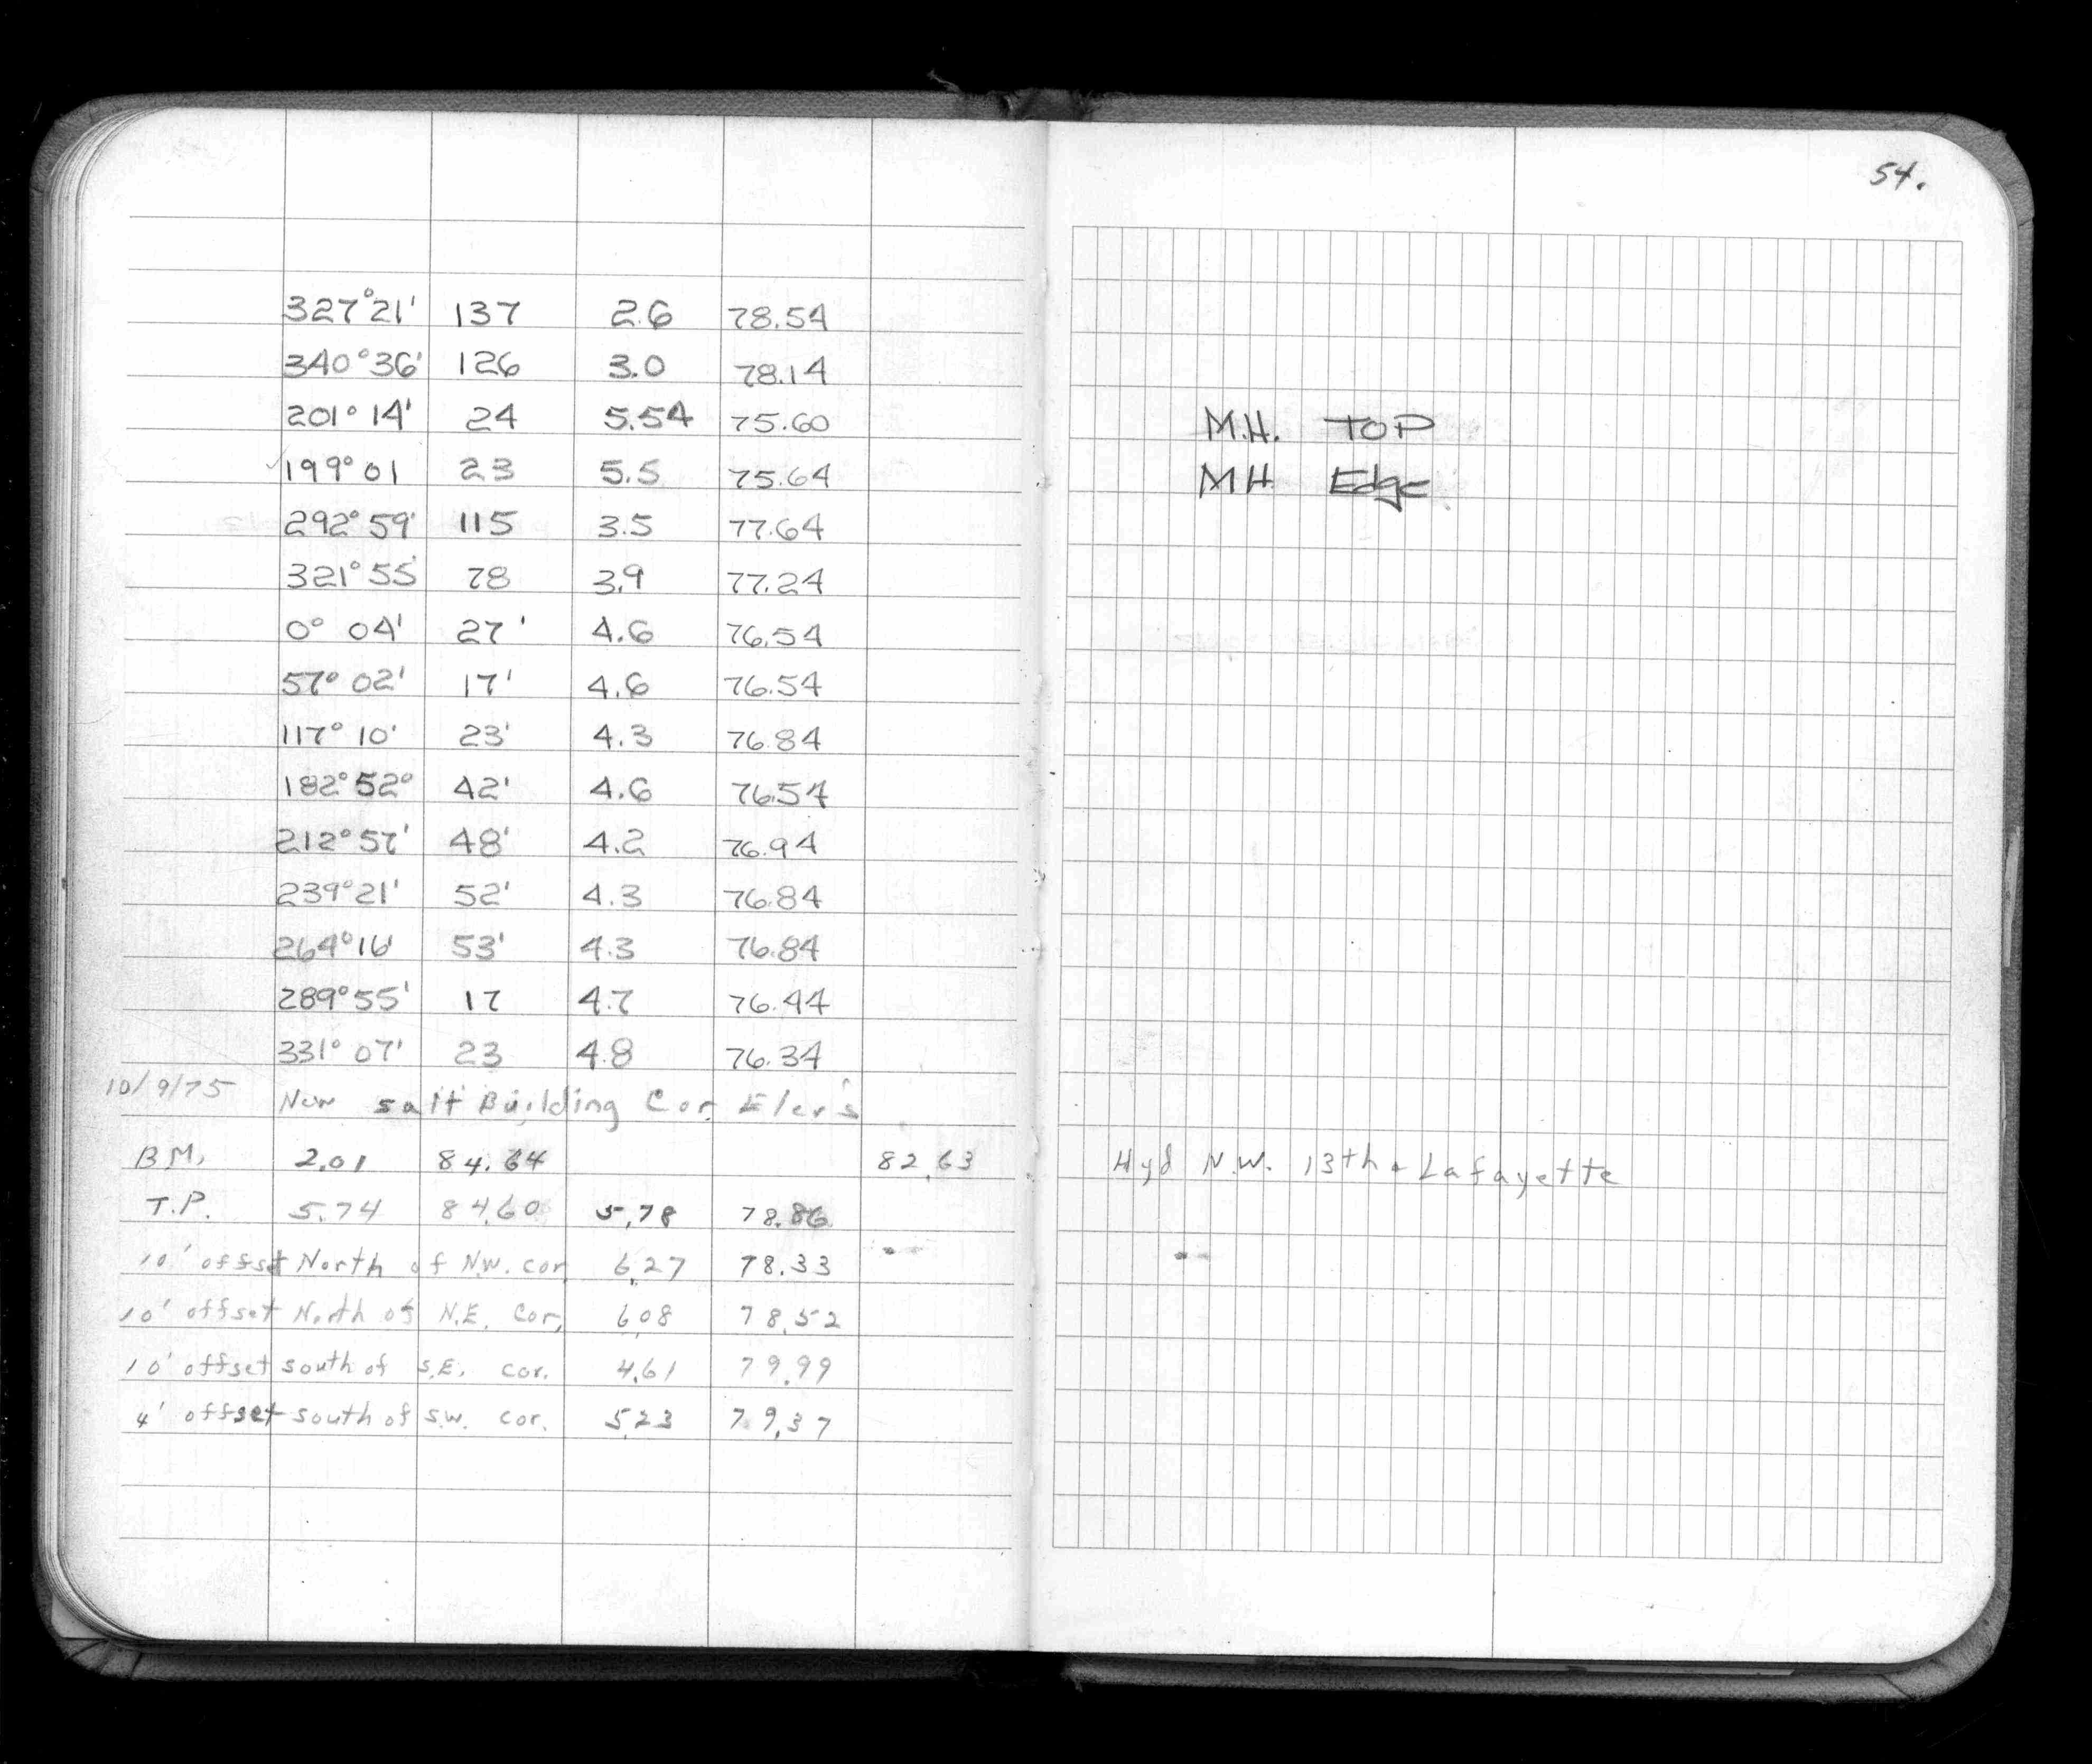 54.
327°21' 137 2.6 78.54
340°36' 126 3.0 78.14
201° 14' 24 5.54 75.60 M.H. TOP
199° 01 23 5.5 75.64 MH Edge
292° 59' 115 3.5 77.64
321° 55' 78 3.9 77.24
0° 04' 27' 4.6 76.54
57° 02' 17' 4.6 76.54
117° 10' 23' 4.3 76.84
182° 52° 42' 4.6 76.54
212° 57' 48' 4.2 76.94
239° 21' 52' 4.3 76.84
264° 16' 53' 4.3 76.84
289° 55' 17 4.7 76.44
331° 07' 23 4.8 76.34
10/9/75 New salt Building Cor. Elev's
B.M. 2.01 84.64 82.63 Hyd N.W. 13th & Lafayette
T.P. 5.74 84.60 5.78 78.86
10' offset North of N.W. cor. 6.27 78.33
10' offset North of N.E. Cor. 6.08 78.52
10' offset south of S.E. cor. 4.61 79.99
4' offset south of S.W. cor. 5.23 79.37